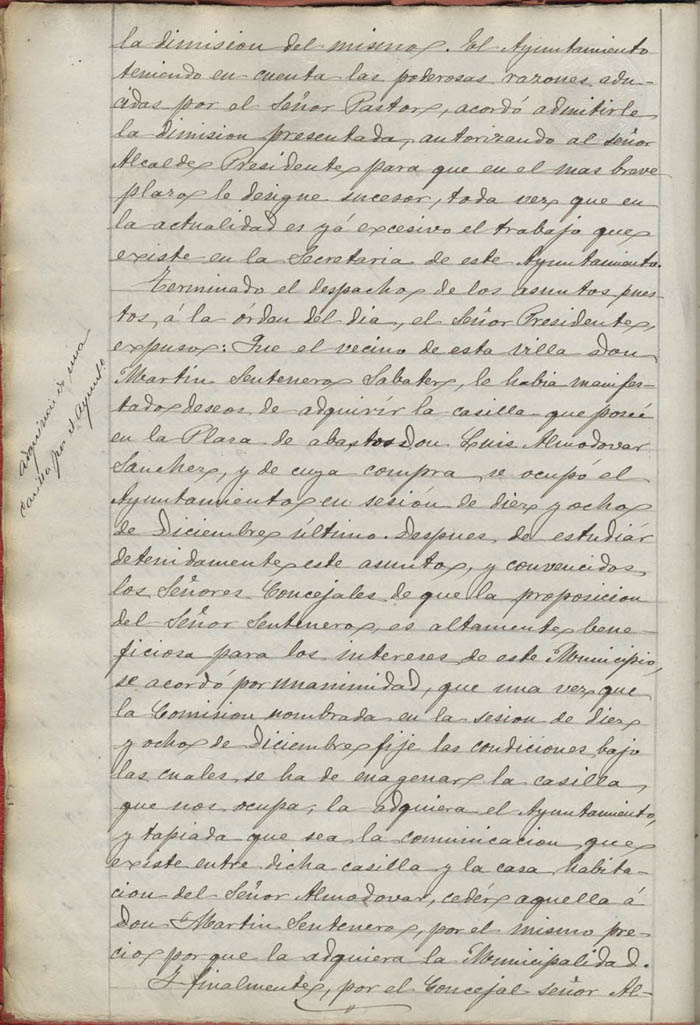 la dimision del mismo. El Ayuntamiento
teniendo en cuenta las poderosas razones adu-
cidas por el Señor Pastor, acordó admitirle
la dimision presentada, autorizando al señor
Alcalde Presidente para que en el mas breve
plazo le designe sucesor, toda vez que en
la actualidad es yá excesivo el trabajo que
existe en la Secretaria de este Ayuntamiento.
Terminado el despacho de los asuntos pues-
tos á la órden del dia, el Señor Presidente,
expuso: Que el vecino de esta villa Don
Martin Sentenero Sabater, le habia manifes-
tado deseos de adquirír la casilla que poseé
en la Plaza de abastos Don Luis Almodovar
Sanchez, y de cuya compra se ocupó el
Ayuntamiento en sesión de diez y ocho
de Diciembre último. Despues de estudiár
detenidamente este asunto, y convencidos
los Señores Concejales de que la proposicion
del Señor Sentenero, es altamente bene-
ficiosa para los intereses de este Municipio,
se acordó por unaminidad, que una vez que
la Comision nombrada en la sesion de diez
y ocho de Diciembre fije las condiciones bajo
las cuales se ha de enagenar la casilla
que nos ocupa, la adquiera el Ayuntamiento,
y tapiada que sea la comunicacion que
existe entre dicha casilla y la casa habita-
cion del Señor Almodovar, cedér aquella á
Don Martin Sentenero, por el mismo pre-
cio porque la adquiera la Municipalidad.
Y finalmente, por el Concejal señor Al-
adquisición de una
casilla por el Ayunto